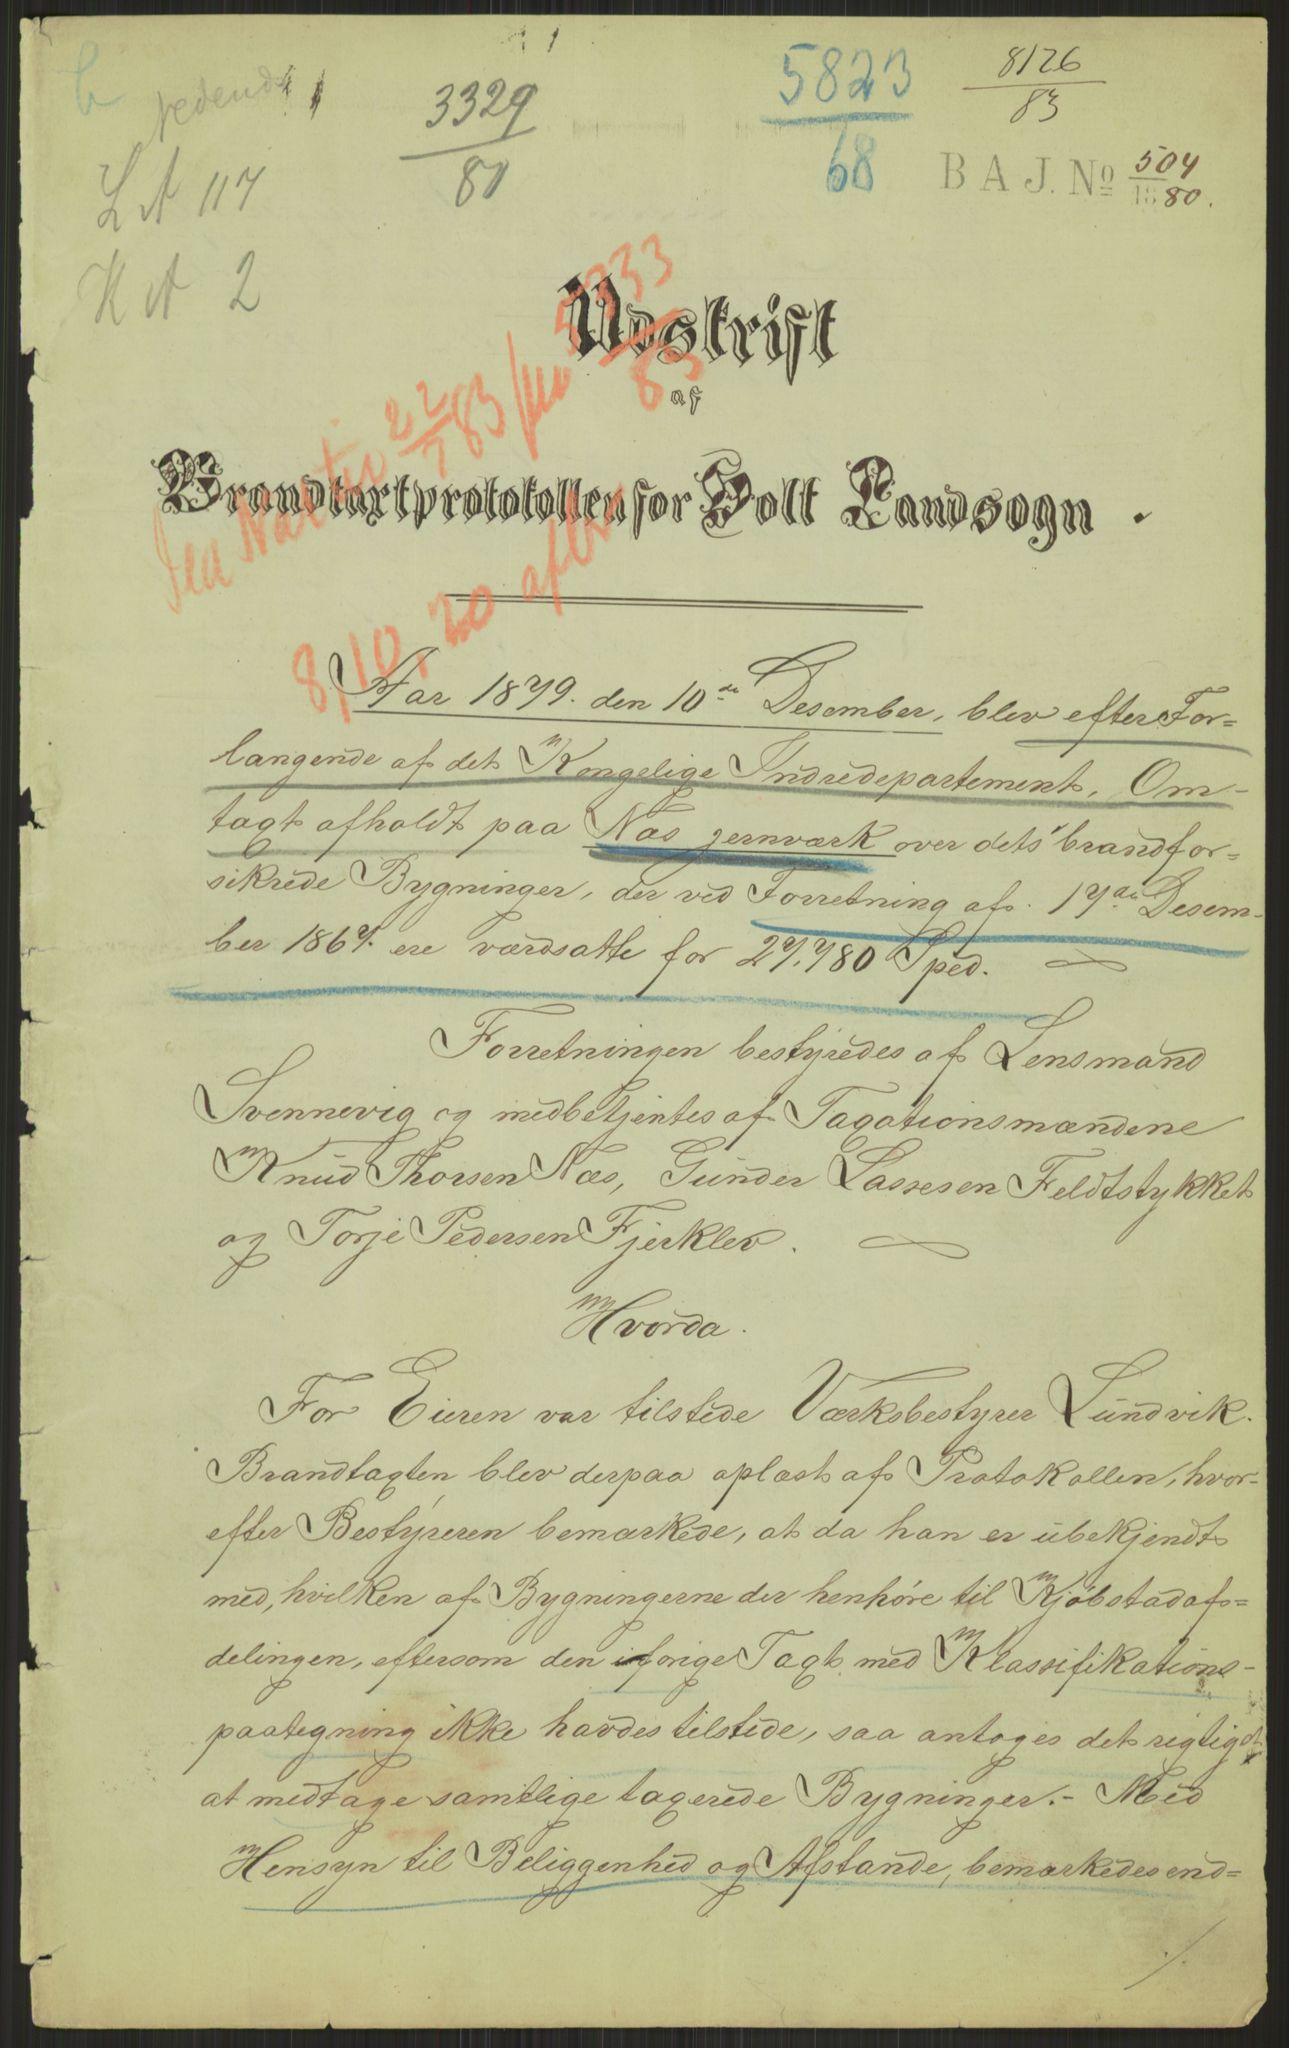 3329
80
5823
68
8126
83
B A J. No 504
1880.
L A 117
K A 2
Udskrift
af
Brandtaxtprotokollen for Holt Landsogn.
8/10, 20 aften
Aar 1879. den 10de Desember, blev efter For=
langende af det Kongelige Indredepartement, Om-
taqt afholdt paa Næs jernværk over dets brandfor=
sikrede Bygninger, der ved Forretning af 17de Desem-
ber 1867. ere værdsatte for 27,780 Sped.
Forretningen bestyredes af Lensmand
Svennevig og medbetjentes af Taqationsmændene
Knud Thorsen Næs, Gunder Lassesen Feldtstykket
og Torje Pedersen Fjerklev.
Hvorda.
For Eieren var tilstede Værksbestyrer Lundvik.
Brandtaqten blev derpaa oplæst af Protokollen, hvor-
efter Bestyreren bemærkede, at da han er ubekjendt
med, hvilken af Bygningerne der henhöre til Kjöbstadaf=
delingen, eftersom den forige Taqt med Klassifikations-
paategning ikke havdes tilstede, saa antoges det rigtigst
at medtage samtlige taqerede Bygninger.- Med
Hensyn til Beliggenhed og Afstande, bemærkedes end=
./.